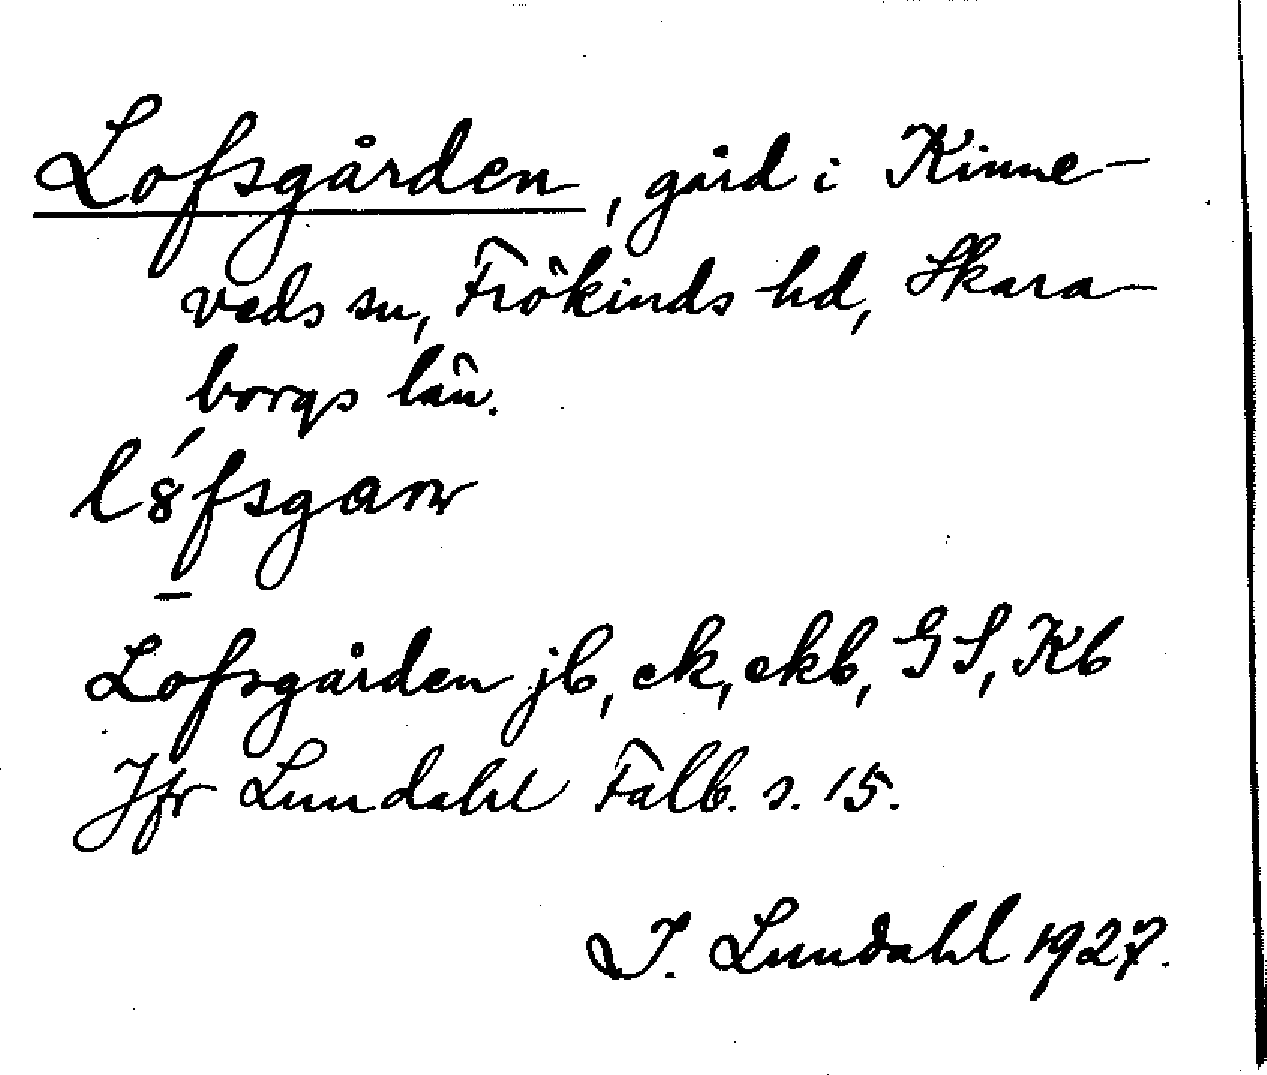 Lofsgården, gård i Kinne-
veds sn, Frökinds hd, Skara-
borgs län.
l8́fsgaṉ
Lofsgården jb, ek, ekb, GS, Kb
Jfr Lundahl Falb. s. 15.
I. Lundahl 1927.